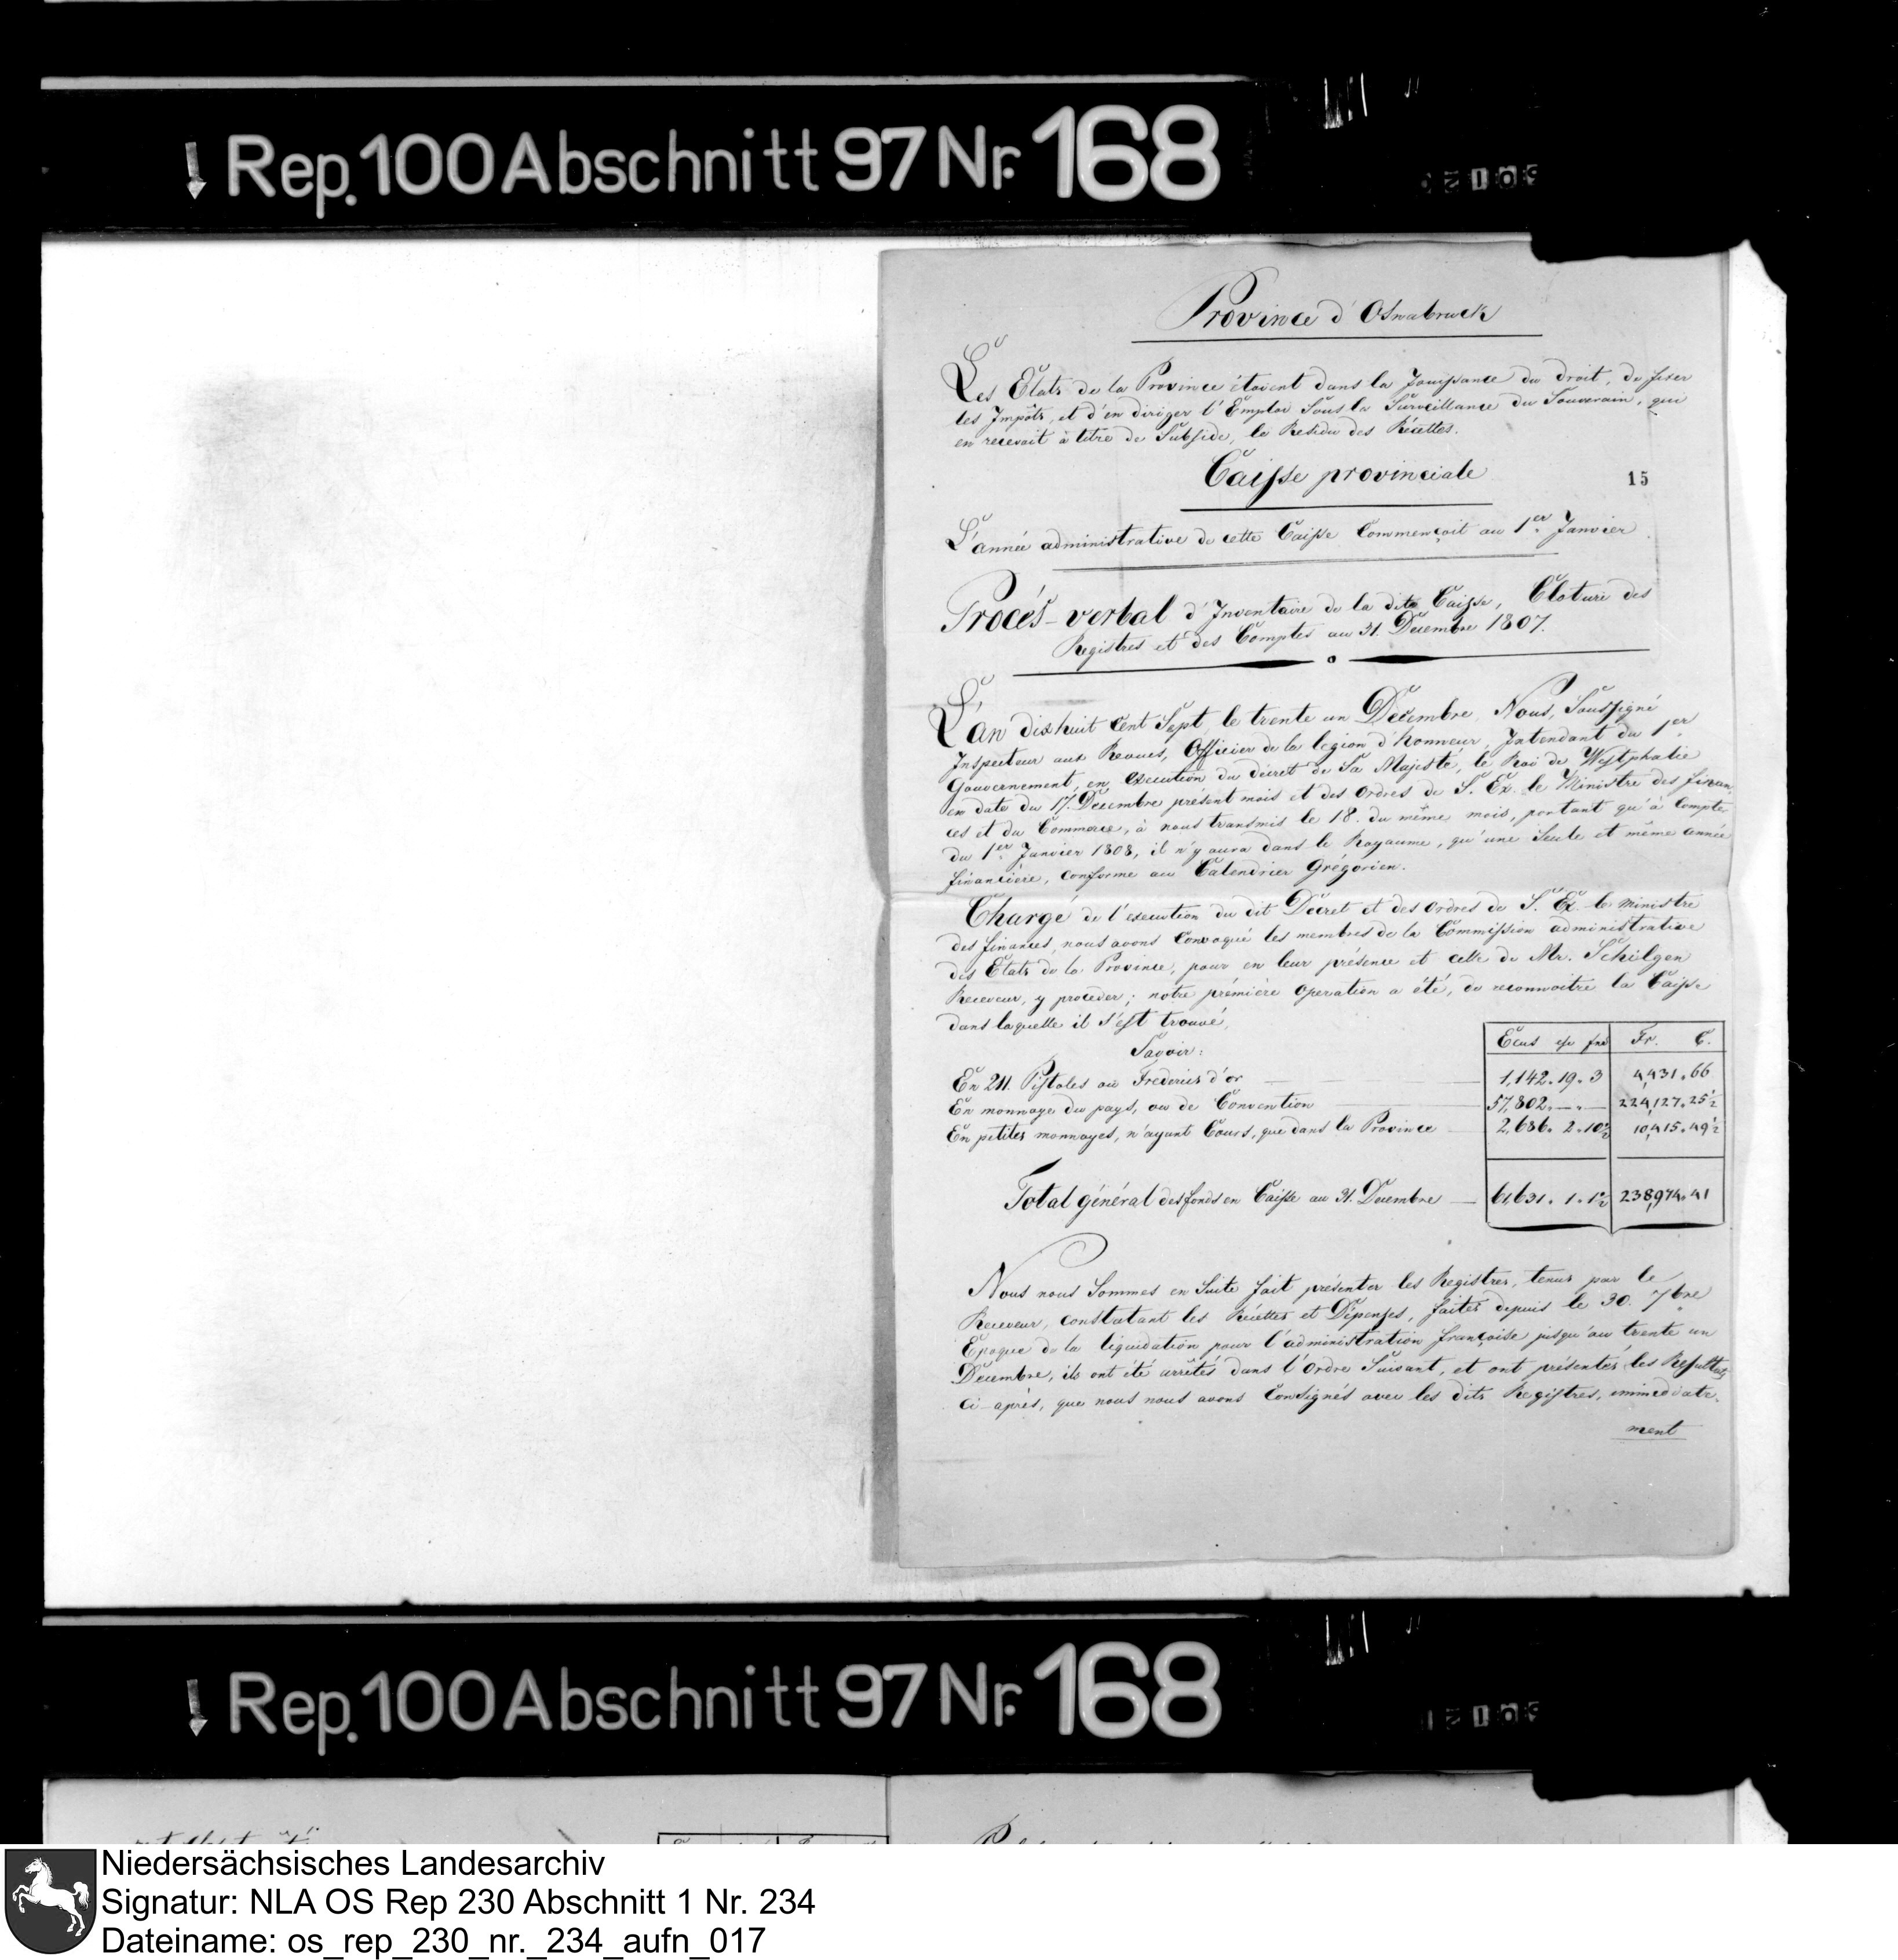 Rep. 100 Abschnitt 97 Nr. 168
Province d'Osnabruck
Les Etats de la Province étoient dans la Jouissance du droit, de fixer
les Impôts, et d'en diriger l'Emploi sous la Surveillance du Souverain, qui
en recevait à titre de Subside, le Residu des Récettes.
Caisse provinciale
15
L'année administrative de cette Caisse Commençoit au 1er Janvier
Procés-verbal d'Inventaire de la dite Caisse, Cloture des
Registres et des Comptes au 31. Decembre 1807.
L'an dix huit Cent Sept le trente un Decembre, Nous, Soussigné
Inspecteur aux Revues, Officier de la legion d'honneur, Intendant du 1er
Gouvernement, en execution du décret de Sa Majesté, le Roi de Westphalie
en date du 17. Decembre présent mois et des Ordres de S. Ex. le Ministre des finan
ces et du Commerce, à nous transmis le 18. du même mois, portant qu'à Compter
du 1er Janvier 1808, il n'y aura dans le Royaume, qu'une Seule et même année
financière, conforme au Calendrier Grégorien.
Chargé de l'execution du dit Décret et des Ordres de S. Ex. le Ministre
des finances, nous avons Convoqué les membres de la Commission administrative
des Etats de la Province, pour en leur présence et celle de Mr. Schilgen
Receveur, y proceder; notre prémière Operation a été, de reconnoitre la Caisse
dans laquelle il s'est trouvé,
Savoir:
Ecus Fr. C.
En 211. Pistoles ou Frederics d'or 1,142. 19. 3 4,431. 66
En monnaye du pays, ou de Convention 57,802. — . — 224,127. 25½
En petites monnayes, n'ayant Cours, que dans la Province 2,686. 2. 10½ 10,415. 49½
Total général des fonds en Caisse au 31. Decembre 61,631. 1. 1½ 238,974. 41
Nous nous Sommes en Suite fait présenter les Registres, tenus par le
Receveur, constatant les Récettes et Dépenses, faites depuis le 30. 7bre
Epoque de la liquidation pour l'administration françoise jusqu'au trente un
Decembre, ils ont été arrêtés dans l'Ordre Suivant, et ont présentés les Resultats
Ci-après, que nous nous avons Consignés avec les dits Registres, immediate-
ment
Rep. 100 Abschnitt 97 Nr. 168
Niedersächsisches Landesarchiv
Signatur: NLA OS Rep 230 Abschnitt 1 Nr. 234
Dateiname: os_rep_230_nr._234_aufn_017